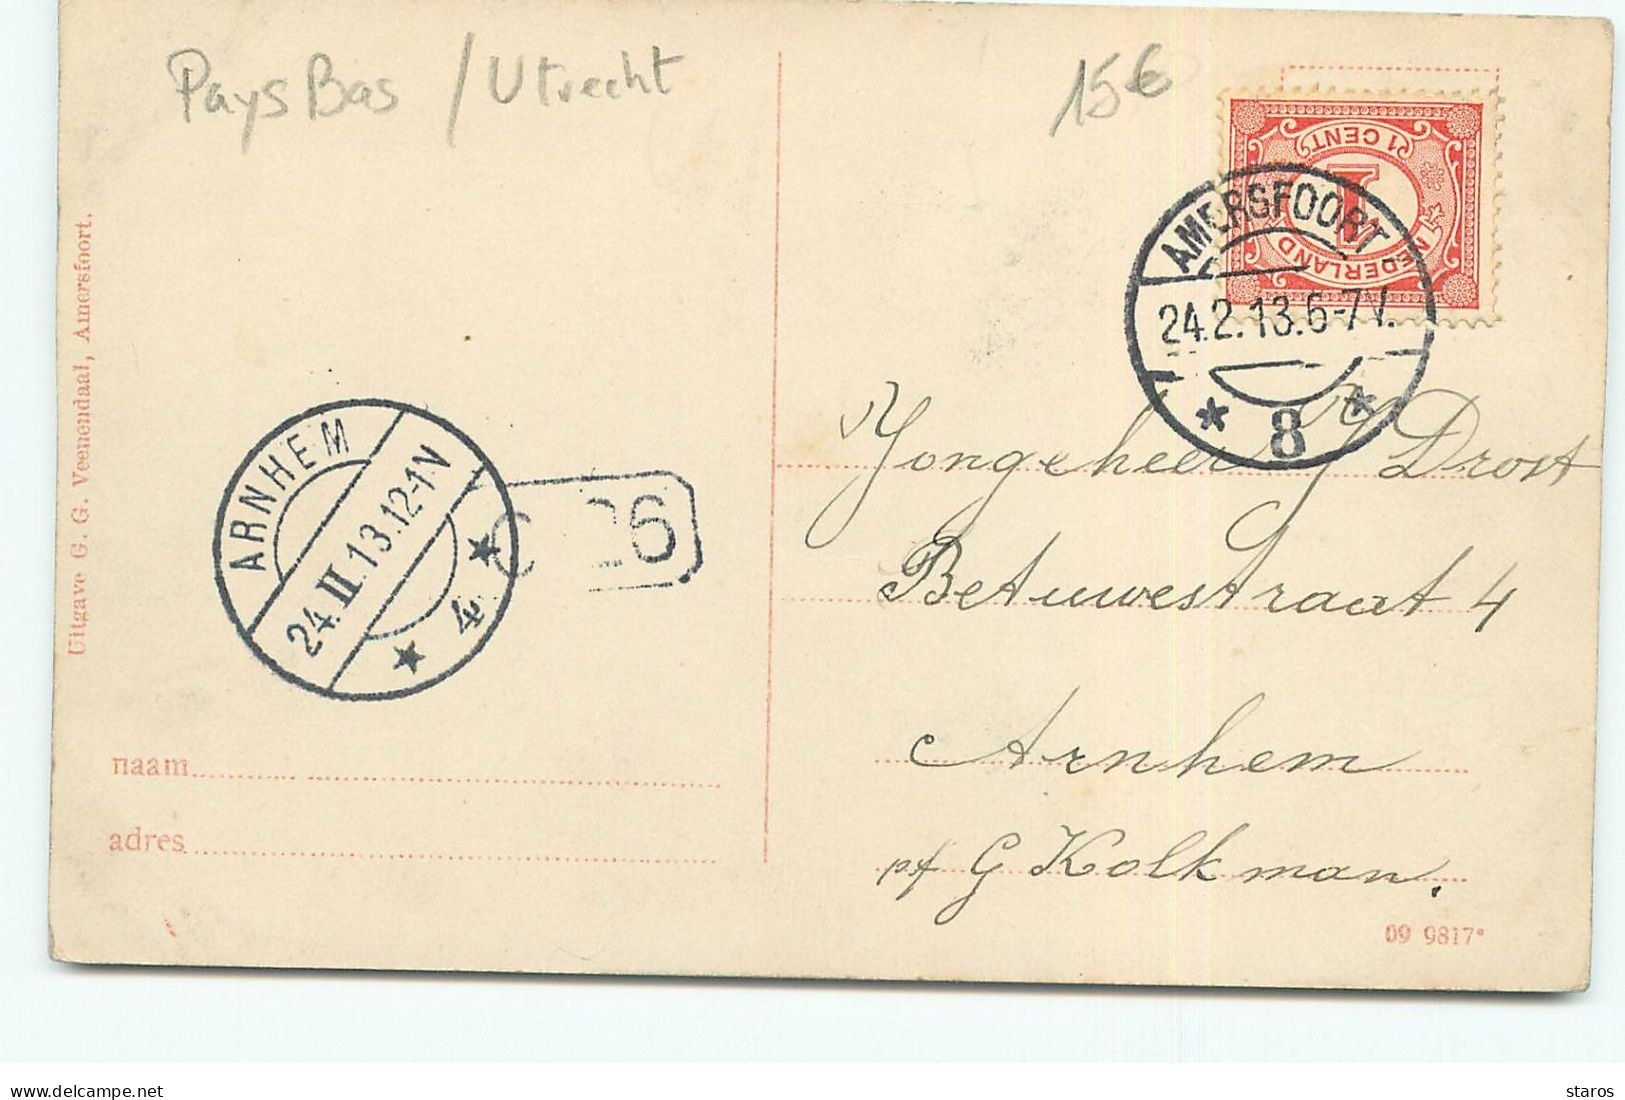 Pays Bas / Utrecht
15€
1 CENT
1
NEDERLAND
AMERSFOORT
24.2.13.6-7V.
* 8 *
Uitgave G. G. Veenendaal, Amersfoort.
ARNHEM
24.II.13.12-1N
* 4 *
26
Jongeheer J Drost
Betuwestraat 4
Arnhem
naam
adres
pf G Kolkman.
09 9817*
staros